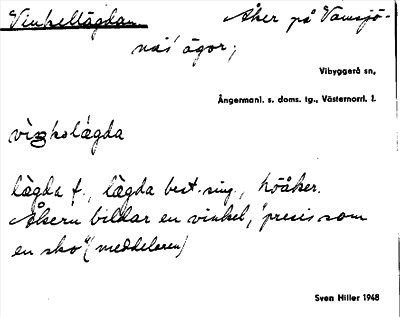 Vinkellägdan. Åker på Vamsjö-
näs' ägor;
Vibyggerå sn,
Ångermanl. s. doms. tg., Västernorrl. l.
viŋkəlägda
lägda f., lägda best. sing., höåker.
Åkern bildar en vinkel, "precis som
en sko" (meddelaren)
Sven Hiller 1948